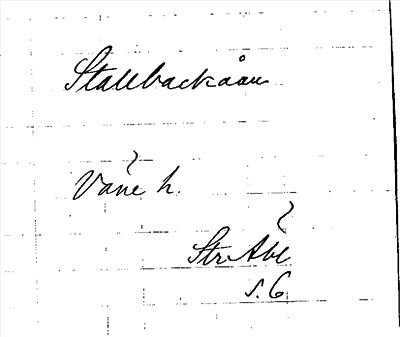 Stallbackaån
Väne h.
Str Åbl
s. 6